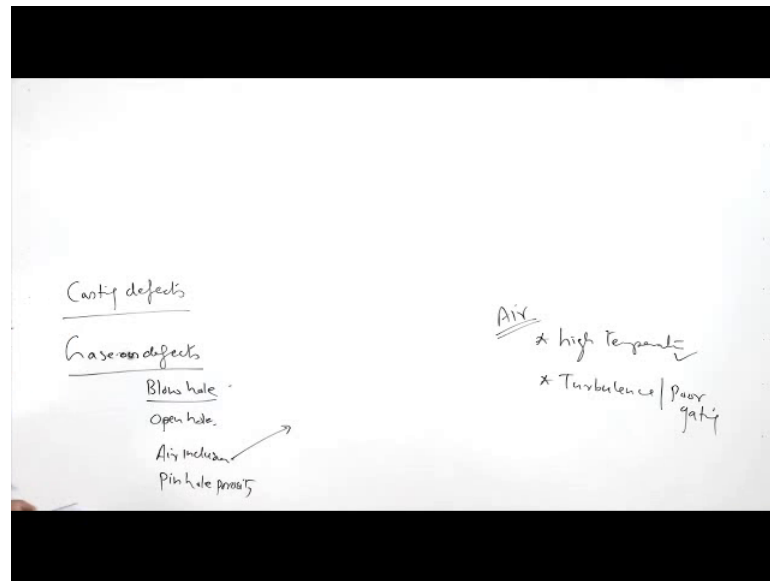 Casting defects
Gaseous defects
Blow hole
Open hole.
Air inclusion
Pin hole porosity
Air
* high Temperature
* Turbulence / Poor
gating